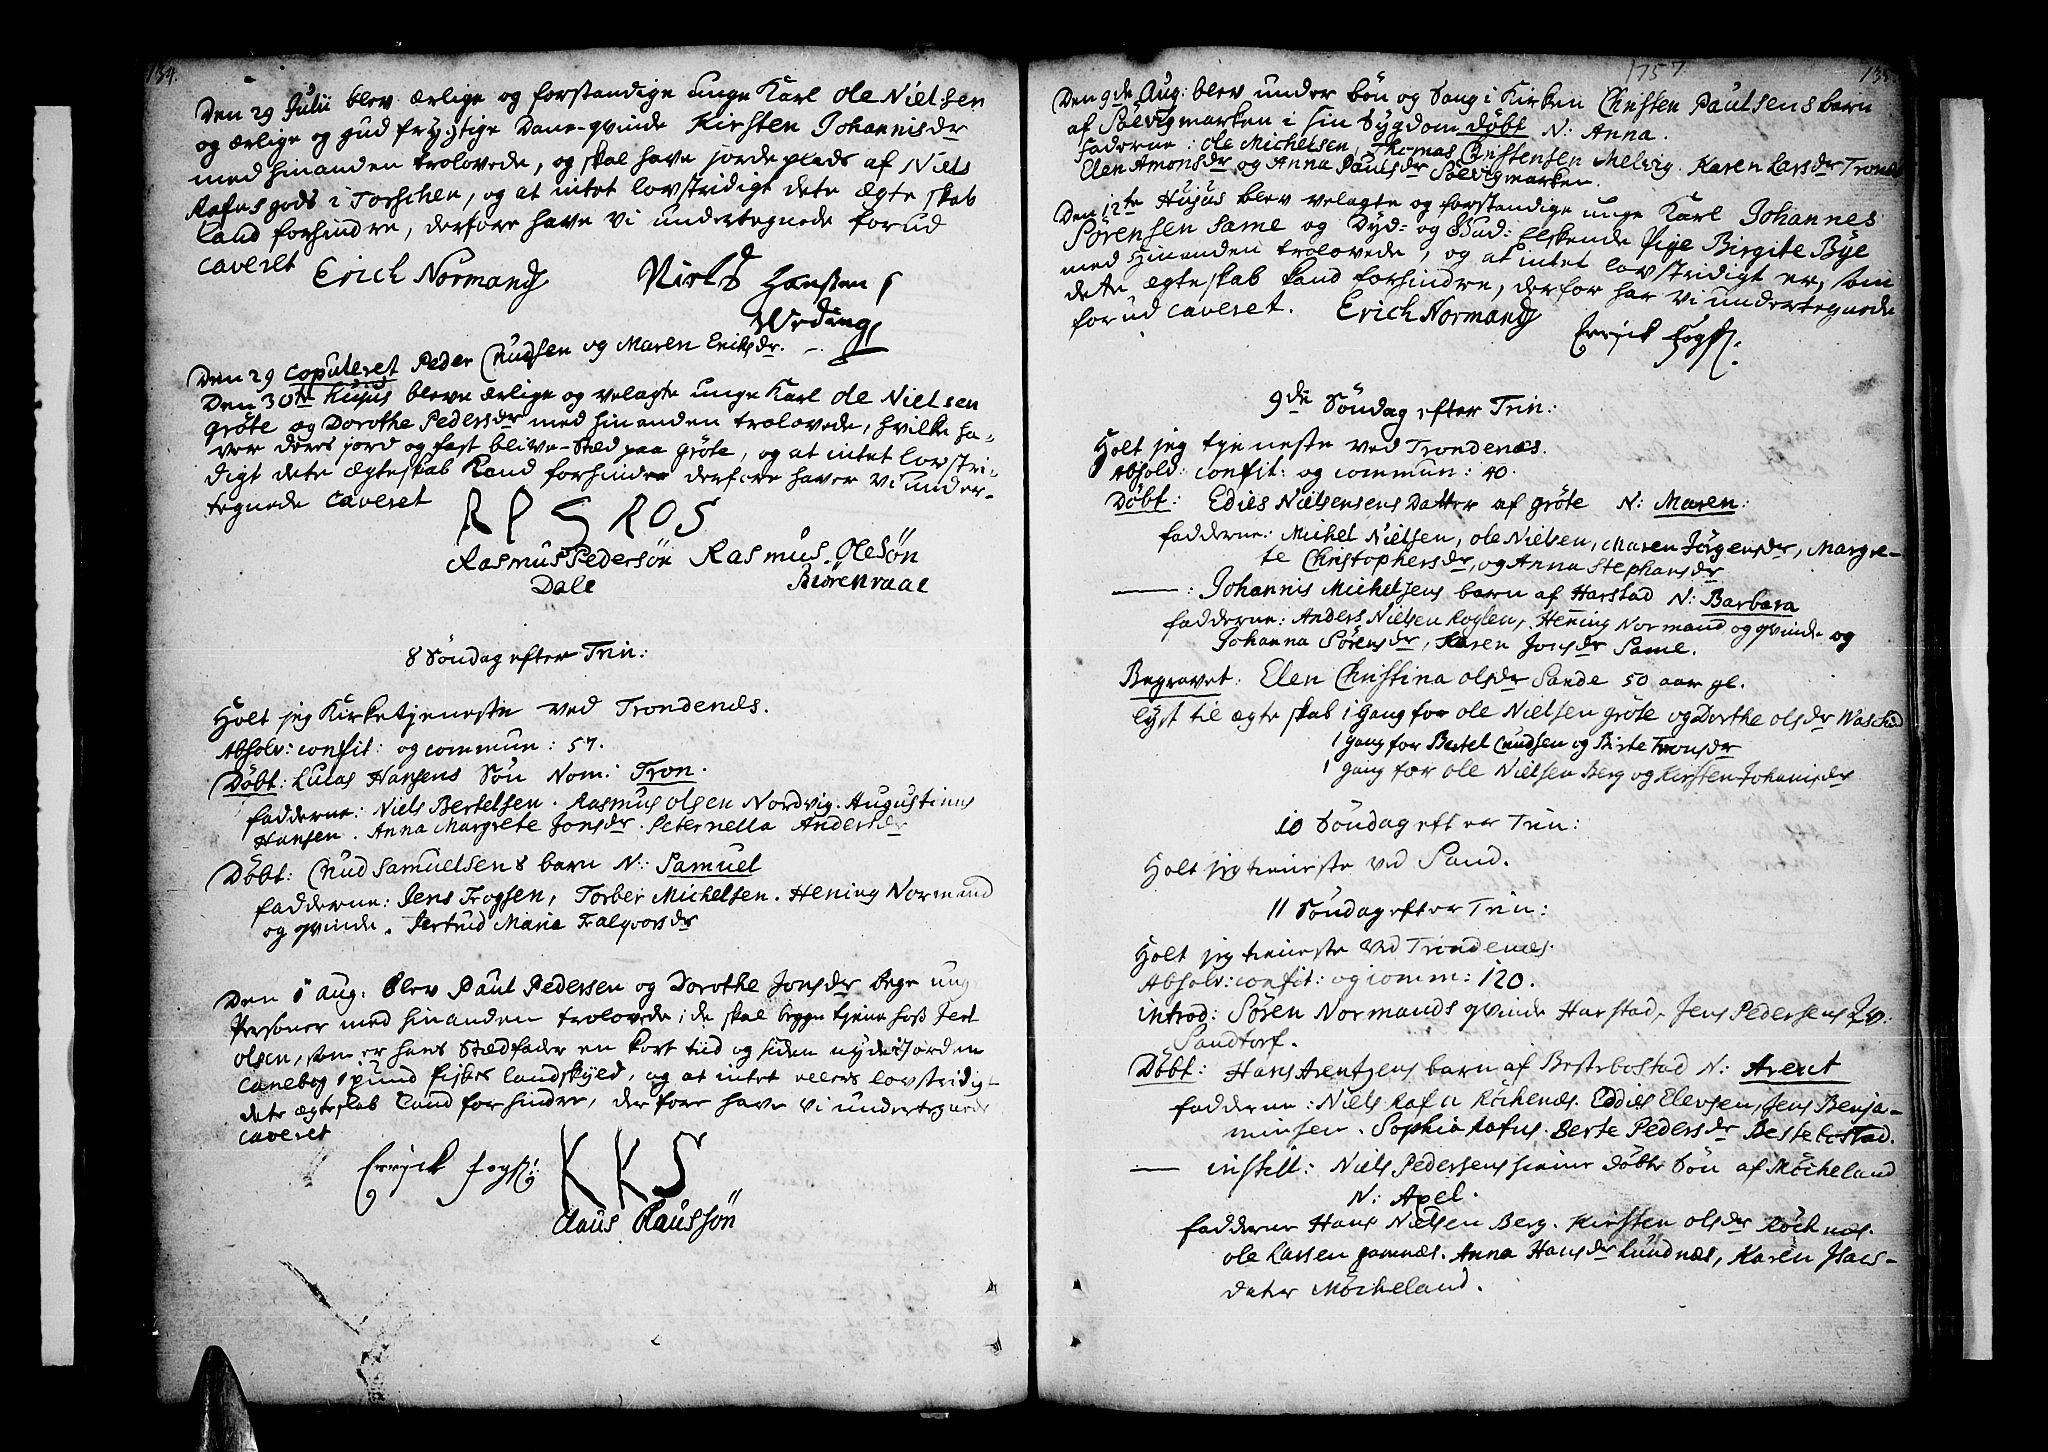 134.
Den 29 Julii blev ærlige og forstandige unge Karl Ole Nielsen
og ærlige og gudfrygtige Dane-qvinde Kirsten Johannisdr
med hinanden trolovede, og skal have jordeplads af Niels
Rafns gods i Torschen, og at intet lovstridigt dete Ægteskab
kand forhindre, derfore have vi undertegnede forud
caveret Erich Normand Niels Hanssen
Weding
Den 29 copuleret Peder Cnudsen og Maren Eriksdr.
Den 30te hujus bleve ærlige og velagte unge Karl Ole Nielsen
Grøte og Dorothe Pedersdr med hinanden trolovede, hvilke ha-
ver deres jord og fast blive-Stæd paa Grøte, og at intet lovstri-
digt dete Ægteskab kand forhindre derfore haver vi under-
tegnede caveret
R P S ROS
Rasmus Pedersøn Rasmus Olesøn
Dale Biørenraae
8 Søndag efter Trin:
Holt jeg Kirketjeneste ved Trondenæs.
Absolv: confit: og commun: 57.
Døbt: Lucas Hansens Søn Nom: Tron.
fadderne: Niels Bertelsen. Rasmus Olsen Nordvig. Augustinus
Hansen. Anna Margrete Jonsdr. Peternella Andersdr
Døbt: Cnud Samuelsens barn N: Samuel
fadderne: Jens Trogsen, Torber Michelsen. Hening Normand
og qvinde. Jertrud Marie Falqvorsdr
Den 1 Aug: blev Paul Pedersen og Dorothe Jonsdr bege ung
Personer med hinanden trolovede; de skal begge tjene hoss Jert
Olsen, som er hans Stædfader en kort tiid og siden nyde Jorden
Canebog 1 pund fiskes landskyld, og at intet ellers lovstridigt
dete ægteskab kand forhindre, derfore have vi undertegnede
caveret
Erryck fogss: KKS
Claus Klaussøn
1757
135
Den 9de Aug: blev under bøn og Sang i Kirken Christen Paulsens barn
af Sølvigmarken i sin Sygdom døbt N: Anna.
fadderne: Ole Michelsen, Thomas Christensen Melvig. Karen Larsdr Trones
Elen Amonsdr og Anna Paulsdr Sølvigmarken.
Den 12te Hujus blev velagte og forstandige unge Karl Johannes
Sørensen Same og Dyd- og Gud: elskende Pige Birgite Bye
med Hinanden trolovede, og at intet lovstridigt er, som
dete ægteskab kand forhindre, derfor har vi undertegnede
forud caveret. Erich Normand
Erryck fogss:
9de Søndag efter Trin:
Holt jeg tjeneste ved Trondenæs.
Absolv: confit: og commun: 40.
Døbt: Edies Nielsensens Datter af Grøte N: Maren:
fadderne: Michel Nielsen, Ole Nielsen, Maren Jørgensdr, Margre-
te Christophersdr, og Anna Stephansdr
—: Johannis Michelsens barn af Harstad N: Barbara
fadderne: Anders Nielsen Roglen, Hening Normand og qvinde og
Johanna Sørensdr, Karen Jonsdr Same.
Begravet: Elen Christina Olsdr Sande 50 aar gl.
lyst til ægteskab 1 gang for Ole Nielsen Grøte og Dorthe Olsdr
1 gang for Bertel Cnudsen og Birte Tronsdr
1 gang for Ole Nielsen Berg og Kirsten Johanisdr
10 Søndag efter Trin:
Holt jeg tieneste ved Sand.
11 Søndag efter Trin:
Holt jeg tieneste ved Trondenæs.
Absolv: confit: og comm: 120.
introd: Søren Normands qvinde Harstad, Jens Pedersens qv:
Sandtorf.
Døbt: Hans Arentzens barn af Bestebostad N: Arent
fadderne: Niels Rafn Røchenæs. Eddies Elevsen, Jens Benja-
minsen. Sophia Rafns. Berte Pedersdr Bestebostad.
— instill: Niels Pedersens hieme døbte Søn af Møcheland
N: Axel.
fadderne Hans Nielsen Berg. Kirsten Olsdr Røchnæs.
Ole Larsen Gamnæs. Anna Hansdr Lundnæs, Karen Isacs-
dater Møcheland.